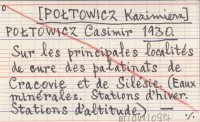 [POŁTOWICZ Kazimiera]
POŁTOWICZ Casimir 1930.
Sur les principales localités
de cure des palatinats de
Cracovie et de Silésie. (Eaux
minérales. Stations d'hiver.
Stations d'altitude) —
·/.